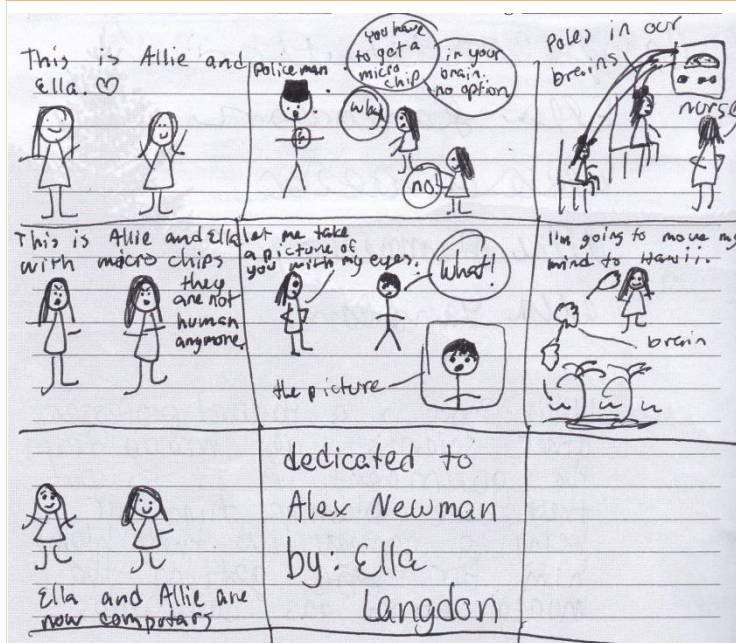 This is Allie and
Ella. ♡
Policeman
You have
to get a
micro
chip
in your
brain.
no option
why
no.
Poles in our
brains
nurse
This is Allie and Ella
with micro chips
they
are not
human
anymore.
let me take
a picture of
you with my eyes.
What!
the picture
I'm going to move my
mind to Hawii.
brain
Ella and Allie are
now computars
dedicated to
Alex Newman
by: Ella
Langdon